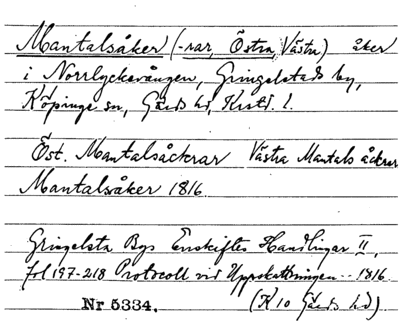 Mantalsåker (-rar, Östra, Västra) åker
i Norrlyckevången, Gringelstads by,
Köpinge sn, Gärds hd, Krist. l.
Öst. Mantalsåckrar Västra Mantals åckrar
Mantalsåker 1816
Gringelsta Bys Enskiftes Handlingar II,
fol 197-218 Protocoll vid Uppskattningen -- 1816
Nr 5334. (K 10 Gärds hd)